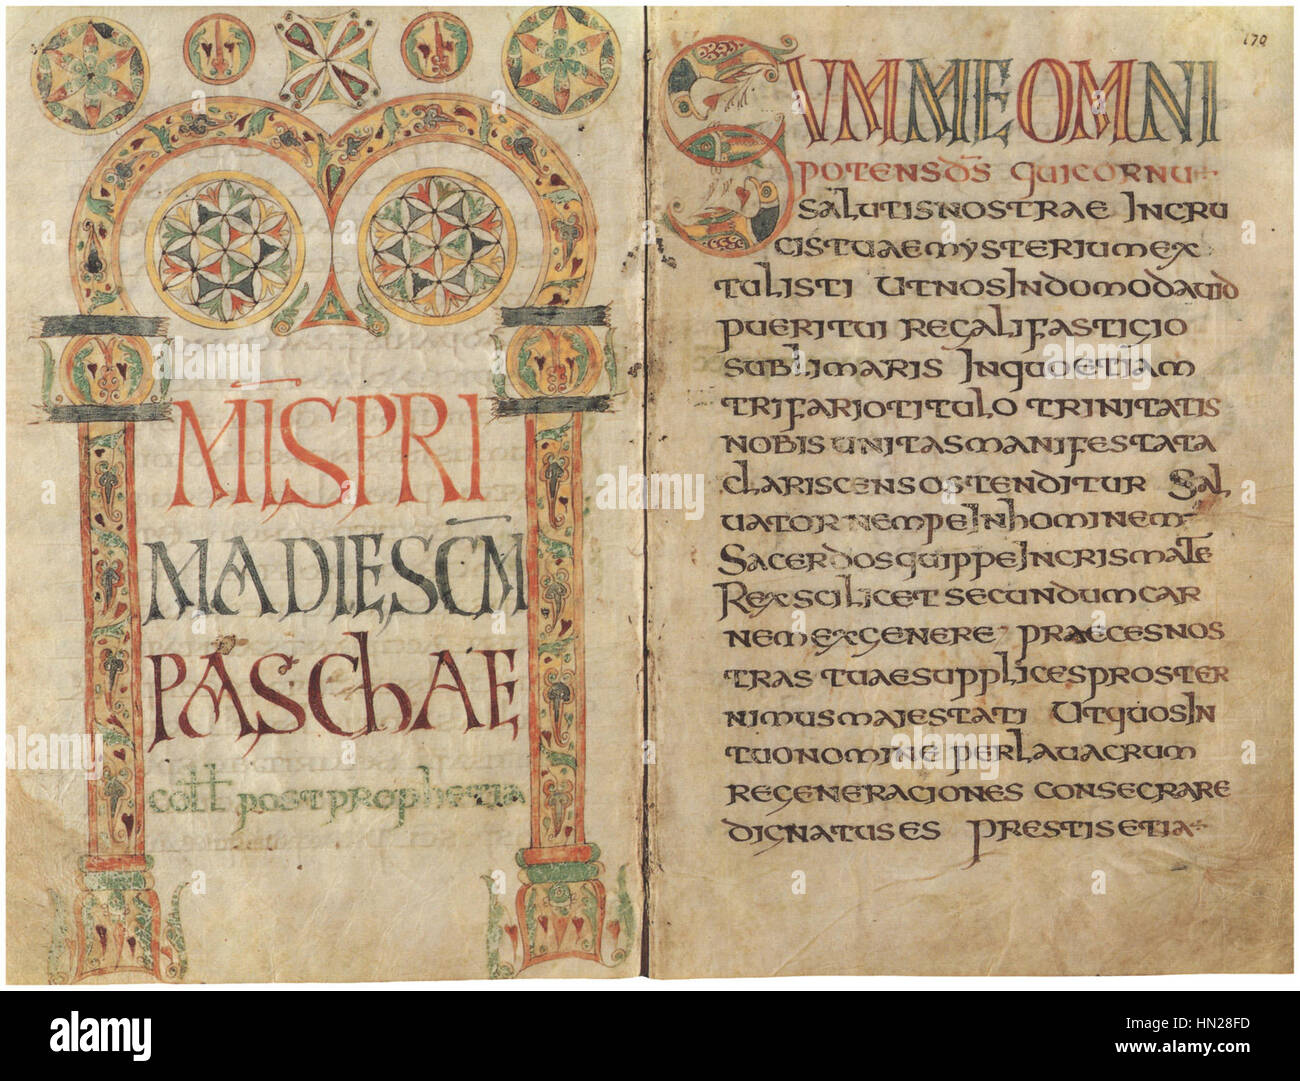 MIS PRI
MA DIE SCM
PASCHAE
coll post prophetia
170
SUMME OMNI
POTENS DS QUI CORNU
SALUTIS NOSTRAE IN CRU
CIS TUAE MYSTERIUM EX
TULISTI UT NOS IN DOMO DAUID
PUERI TUI REGALI FASTIGIO
SUBLIMARIS IN QUO ETIAM
TRIFARIO TITULO TRINITATIS
NOBIS UNITAS MANIFESTATA
CLARISCENS OSTENDITUR SAL
UATOR NEMPE IN HOMINEM
SACERDOS QUIPPE IN CRISMATE
REX SCILICET SECUNDUM CAR
NEM EX GENERE PRAECES NOS
TRAS TUAE SUPPLICES PROSTER
NIMUS MAIESTATI UT QUOS IN
TUO NOMINE PER LAUACRUM
REGENERACIONES CONSECRARE
DIGNATUS ES PRESTIS ETIA
alamy
Image ID: HN28FD
www.alamy.com